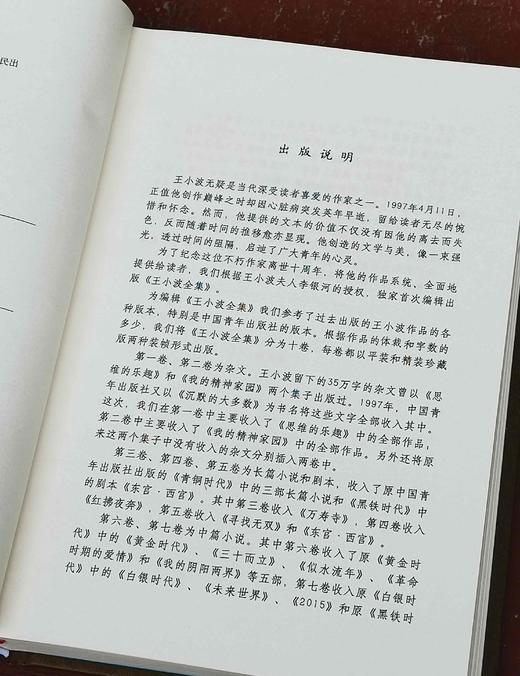 民出
出版说明
王小波无疑是当代深受读者喜爱的作家之一。1997年4月11日，
正值他创作巅峰之时却因心脏病突发英年早逝，留给读者无尽的惋
惜和怀念。然而，他提供的文本的价值不仅没有因他的离去而失
色，反而随着时间的推移愈亦显现。他创造的文学与美，像一束强
光，透过时间的阻隔，启迪了广大青年的心灵。
为了纪念这位不朽作家离世十周年，将他的作品系统、全面地
提供给读者，我们根据王小波夫人李银河的授权，独家首次编辑出
版《王小波全集》。
为编辑《王小波全集》我们参考了过去出版的王小波作品的各
种版本，特别是中国青年出版社的版本。根据作品的体裁和字数的
多少，我们将《王小波全集》分为十卷，每卷都以平装和精装珍藏
版两种装帧形式出版。
第一卷、第二卷为杂文。王小波留下的35万字的杂文曾以《思
维的乐趣》和《我的精神家园》两个集子出版过。1997年，中国青
年出版社又以《沉默的大多数》为书名将这些文字全部收入其中。
这次，我们在第一卷中主要收入了《思维的乐趣》中的全部作品；
第二卷中主要收入了《我的精神家园》中的全部作品。另外还将原
来这两个集子中没有收入的杂文分别插入两卷中。
第三卷、第四卷、第五卷为长篇小说和剧本，收入了原中国青
年出版社出版的《青铜时代》中的三部长篇小说和《黑铁时代》中
的剧本《东宫·西宫》。其中第三卷收入《万寿寺》，第四卷收入
《红拂夜奔》，第五卷收入《寻找无双》和《东宫·西宫》。
第六卷、第七卷为中篇小说。其中第六卷收入了原《黄金时
代》中的《黄金时代》、《三十而立》、《似水流年》、《革命
时期的爱情》和《我的阴阳两界》等五部，第七卷收入原《白银时
代》中的《白银时代》、《未来世界》、《2015》和原《黑铁时